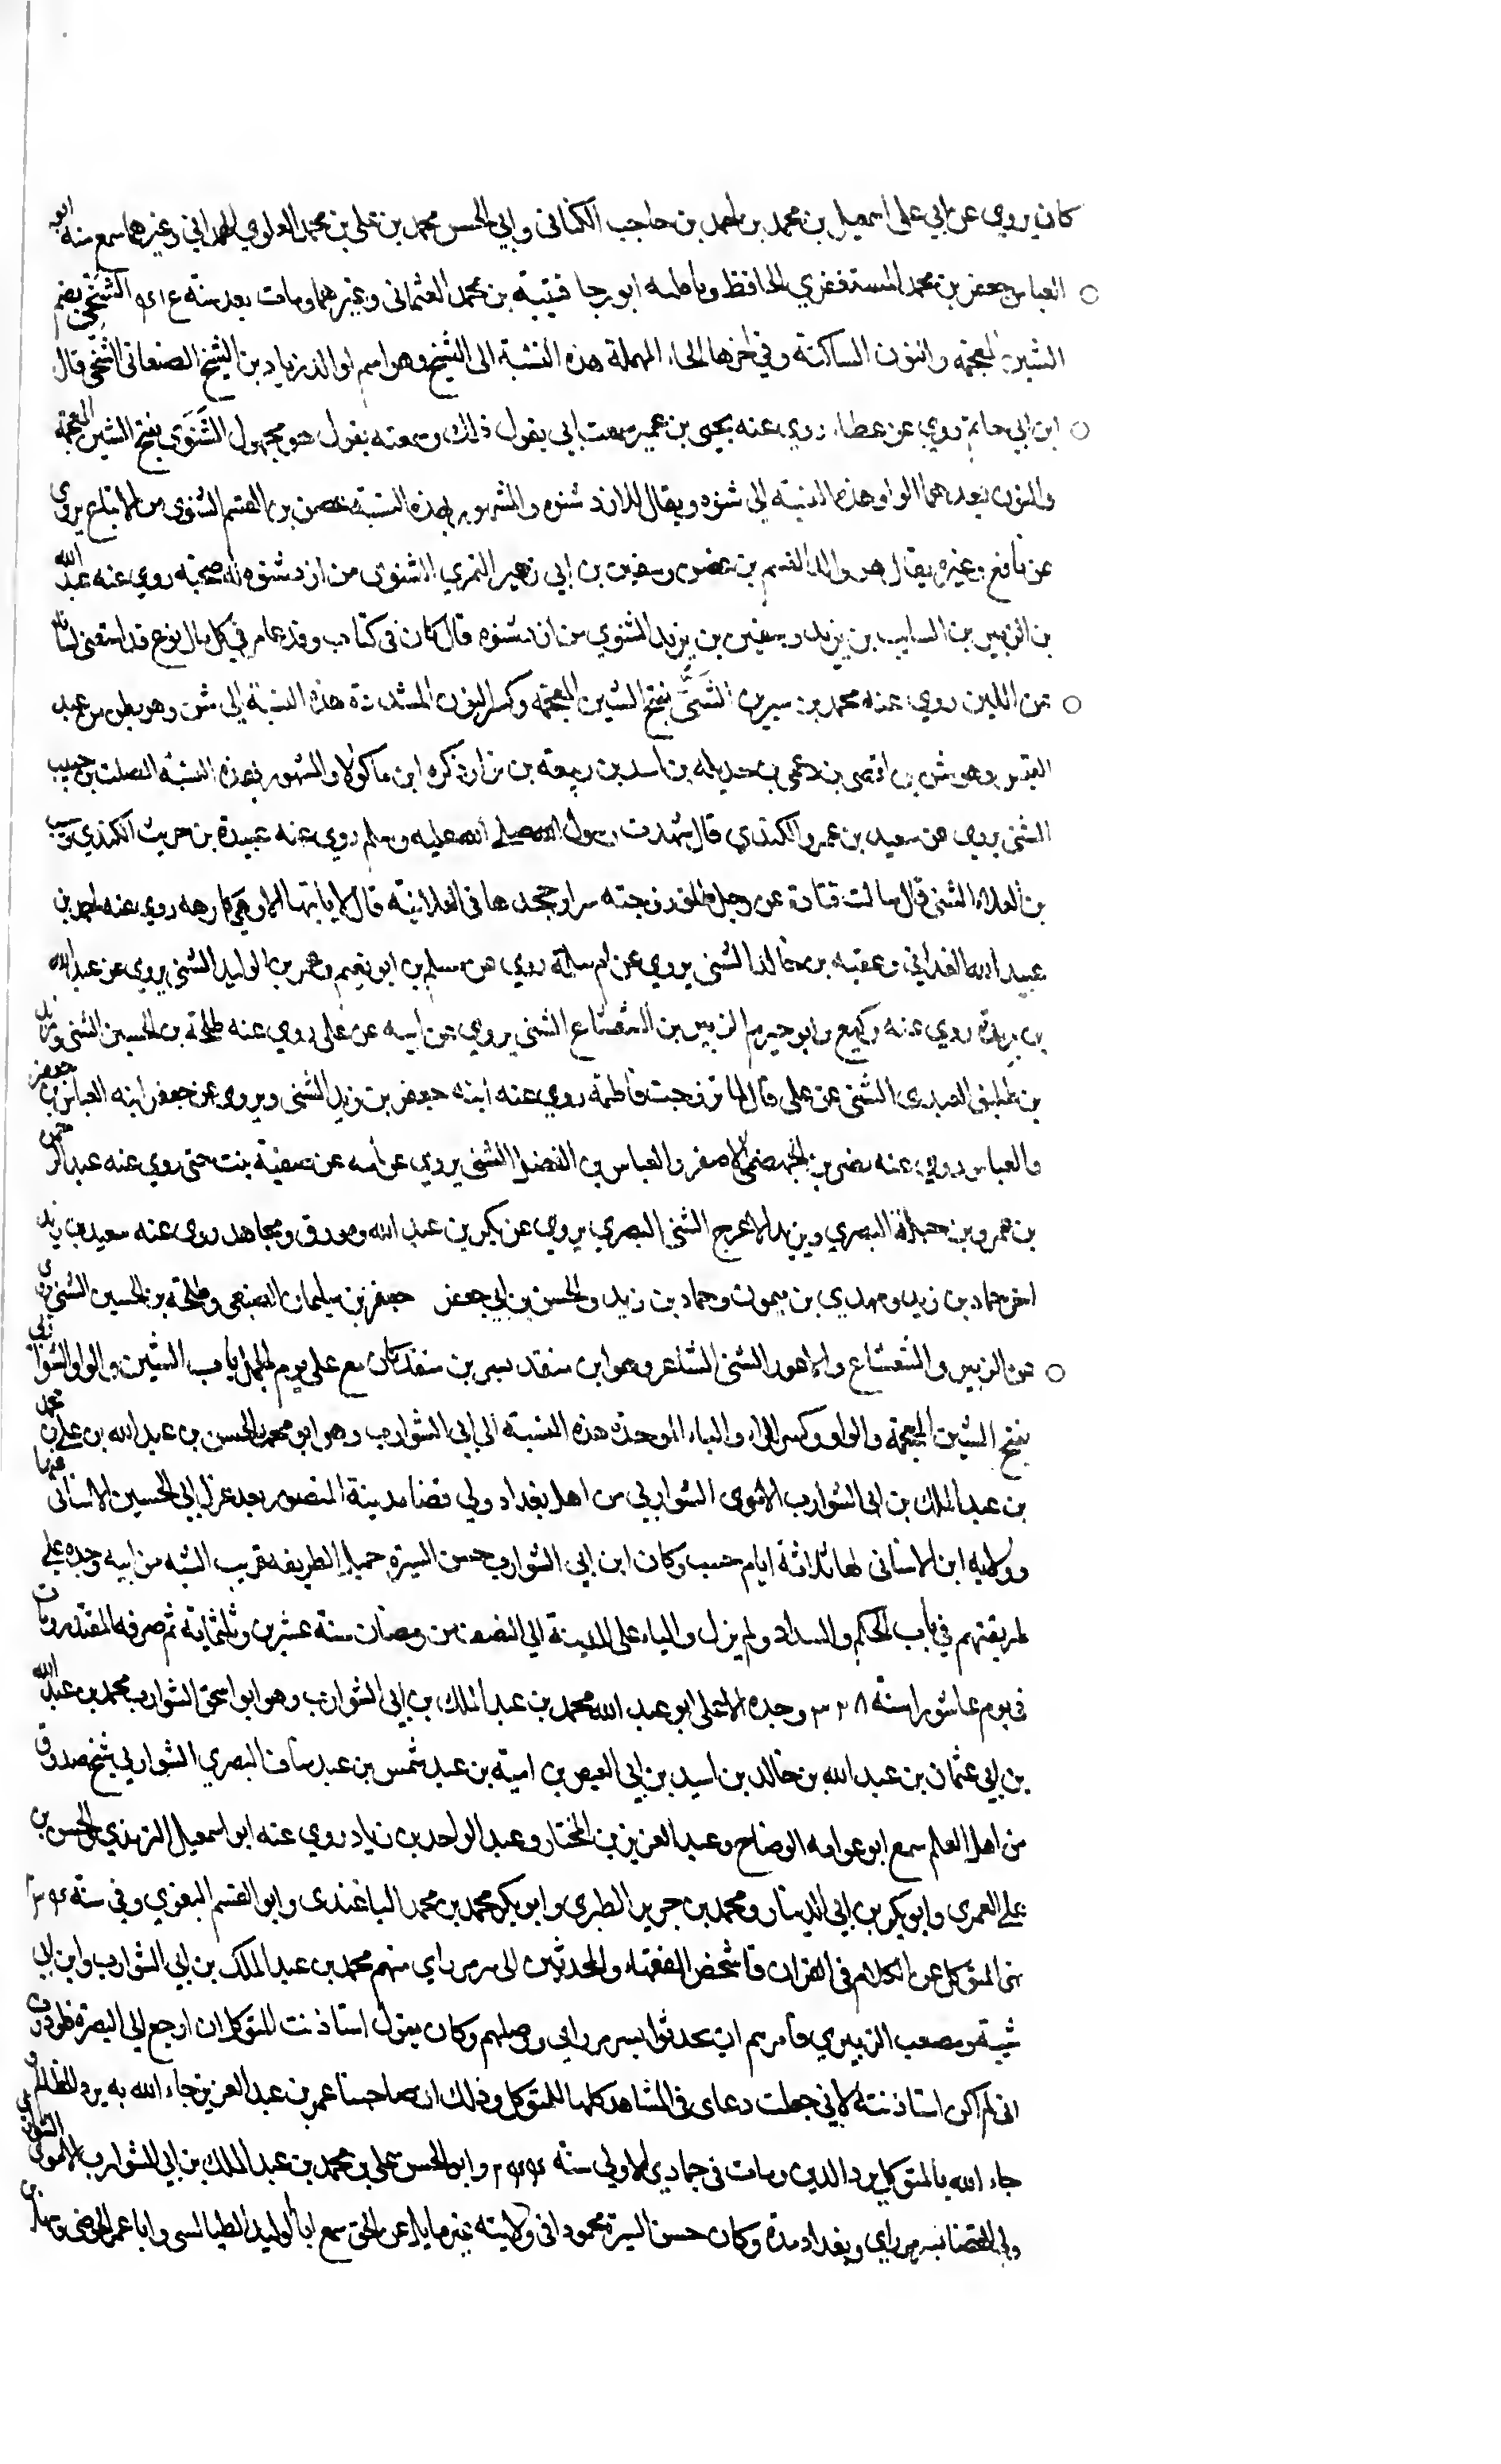 كان يروي عن ابي علي اسمعيل بن محمد بن احمد بن حاجب الكشاني وابي الحسن محمد بن علي بن محمد العلوي الهمداني وغيرهما سمع منه ابو
العباس جعفر بن محمد المستغفري الحافظ وفاطمه ابو رجا قتيبة بن محمد العثماني وغيرهما ومات بعد سنة الشنحي بضم
الشين المعجمه والنون الساكنة وفي اخرها الحاء المهملة هذه النسبة الى الشنح وهو اسم لوالد زياد بن الشنح الصنعاني الشنحي قال
ابن ابي حاتم روي عن عطاء روي عنه يحيى بن عمير سمعت ابي يقول ذلك وسمعته يقول هو مجهول الشَنَوَى بفتح الشين المعجمة
والنون بعدهما الواو هذه النسبة الى شنوه ويقال للازد شنوه والمشهور بهذه النسبة بن القسم الشنوى من الاتباع يروى
عن نافع وغيره يقال هو والد القسم بن وسفين بن ابي زهير النمري الشنوى من ازد شنوه له صحبة روي عنه عبد الله
بن الزبير بن السايب بن يزيد وسفين بن يزيد الشنوي من ازد شنوه قال كان في كتاب في كل مال
بن اللين روي عنه محمد بن سيرين الشَنّي بفتح الشين المعجمه وكسر النون المشددة هذه النسبة الى شن وهو بطن من عبد
القيس وهو شن بن افصى بن دعمي بن جديله بن اسد بن ربيعه بن نزار ذكره ابن ماكولا والمشهور بهذه النسبة الصلت بن حبيب
الشني يروي عن سعيد بن عمرو الكندي قال شهدت رسول الله صلى الله عليه وسلم روي عنه عبيدة بن حريث الكندي
بن العلاء الشني قال سالت قتادة عن رجل طلق زوجته سرا وجحدها في العلانية قال لا ياتها الا وهي كارهه روي عنه احمد بن
عبيد الله الغداني وعقبه بن خالد الشني يروي عن ام سلمة روي عن مسلم بن ابو نعيم وعمر بن الوليد الشني يروي عن عبد الله
بن بريدة روي عنه وكيع وابو خيرم الزبير بن الشعشاع الشني يروي عن ابيه عن علي روي عنه طلحة بن الحسين الشني وزيد
بن طليق العبدي الشني عن علي قال لما تزوجت فاطمة روي عنه ابنه جعفر بن زيد الشني ويروي عن جعفر ابنه العباس بن جعفر
والعباس روي عنه نصر بن الجهضمي الاصغر والعباس بن الفضل الشني يروي عن امه عن صفية بنت حيي روي عنه عبد الرحمن
بن عمرو بن جبلة البصري ويزيد الاعرج الشني البصري يروي عن بكر بن عبد الله ومورق ومجاهد روي عنه سعيد بن زيد
اخو حماد بن زيد ومهدي بن ميمون وحماد بن زيد والحسن بن ابي جعفر جعفر بن سليمان الضبعي وطلحة بن الحسين الشني روى
عن الزبير والشعشاع والاعور الشني الشاعر وهو ابن منقذ بسر بن منقذ كان مع علي يوم الجمل باب الشين والواو الشواربي
بفتح الشين المعجمة والواو وكسر الراء والباء الموحدة هذه النسبة الى ابي الشوارب وهو ابو محمد الحسن بن عبد الله بن علي بن محمد
بن عبد الملك بن ابي الشوارب الاموى الشواربي من اهل بغداد ولي قضا مدينة المنصور بعد عزل ابي الحسين الاشناني
وولايه ابن الاشناني لها ثلاثة ايام حسب وكان ابن ابي الشوارب حسن السيرة جميل الطريقه قريب الشبه من ابيه وجده علي
طريقتهم في باب الحكم والسداد ولم يزل واليا على المدينة الى النصف من رمضان سنة عشرين وثلثماية ثم صرفه المقتدر ومات
في يوم عاشورا سنة ٣٢٨ وجده الاعلى ابو عبد الله محمد بن عبد الملك بن ابي الشوارب وهو ابو اسحق الشوارب محمد بن عبد الله
بن ابي عثمان بن عبد الله بن خالد بن اسيد بن ابي العيص بن امية بن عبد شمس بن عبد مناف البصري الشواربي شيخ صدوق
من اهل العلم سمع ابو عوانه الوضاح وعبد العزيز بن المختار وعبد الواحد بن زياد روي عنه ابو اسمعيل الترمذي والحسن بن
علي العمري وابو بكر بن ابي الدنيا ومحمد بن جرير الطبري وابو بكر محمد بن محمد الباغندي وابو القسم البغوي وفي سنة
نهى المتوكل عن الكلام في القران فاشخص الفقهاء والمحدثين الى سر من راي منهم محمد بن عبد الملك بن ابي الشوارب وابن ابي
شيبة ومصعب الزبيري فامرهم ان يحدثوا بسر من راي ووصلهم وكان يقول استاذنت المتوكل ان ارجع الى البصرة
اني لم اكن استاذنته لاني جعلت دعاي في المشاهد كلها للمتوكل وذلك ان صاحبنا عمر بن عبد العزيز جاء الله به يرد المظالم
جاء الله بالمتوكل يرد الدين ومات في جمادي الاولي سنة وابو الحسن علي بن محمد بن عبد الملك بن ابي الشوارب الاموى الشواربي
ولي القضا بسر من راي وبغداد مدة وكان حسن السيرة محمودا في ولايته غير مايل عن الحق سمع ابا الوليد الطيالسي وابا عمر الحوضي